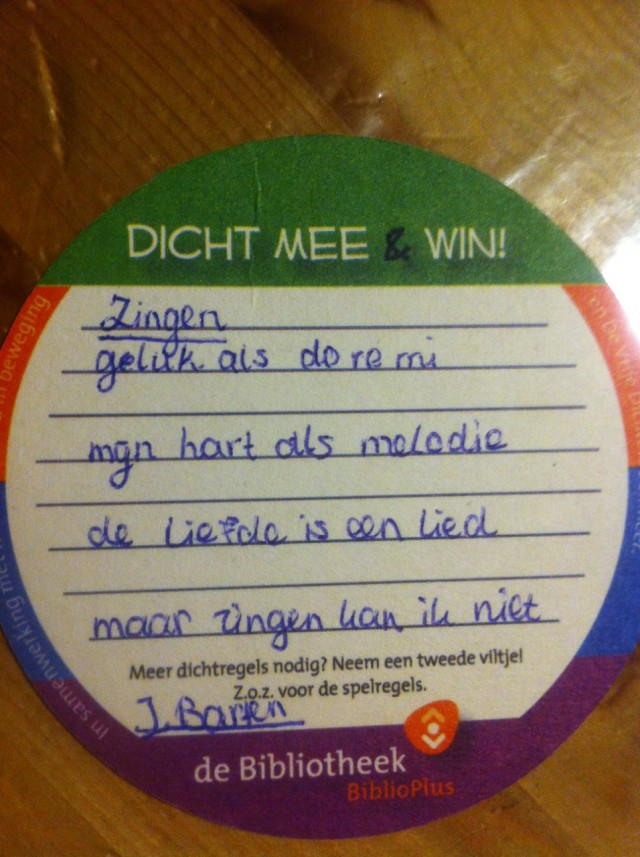 DICHT MEE & WIN!
Zingen
geluk als do re mi
mijn hart als melodie
de liefde is een lied
maar zingen kan ik niet
Meer dichtregels nodig? Neem een tweede viltje!
Z.o.z. voor de spelregels.
J. Barten
de Bibliotheek
BiblioPlus
in beweging
In samenwerking met
en De Vrije